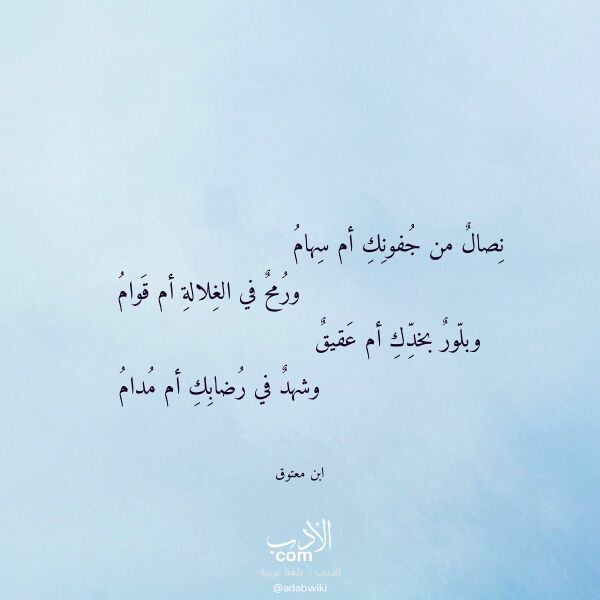 نِصالٌ من جُفونِكِ أم سِهامُ
ورُمحٌ في الغِلالةِ أم قَوامُ
وبلّورٌ بخدِّكِ أم عَقيقٌ
وشهدٌ في رُضابِكِ أم مُدامُ
ابن معتوق
الأدب
com
الأدب .. بلغة عربية
@adabwiki